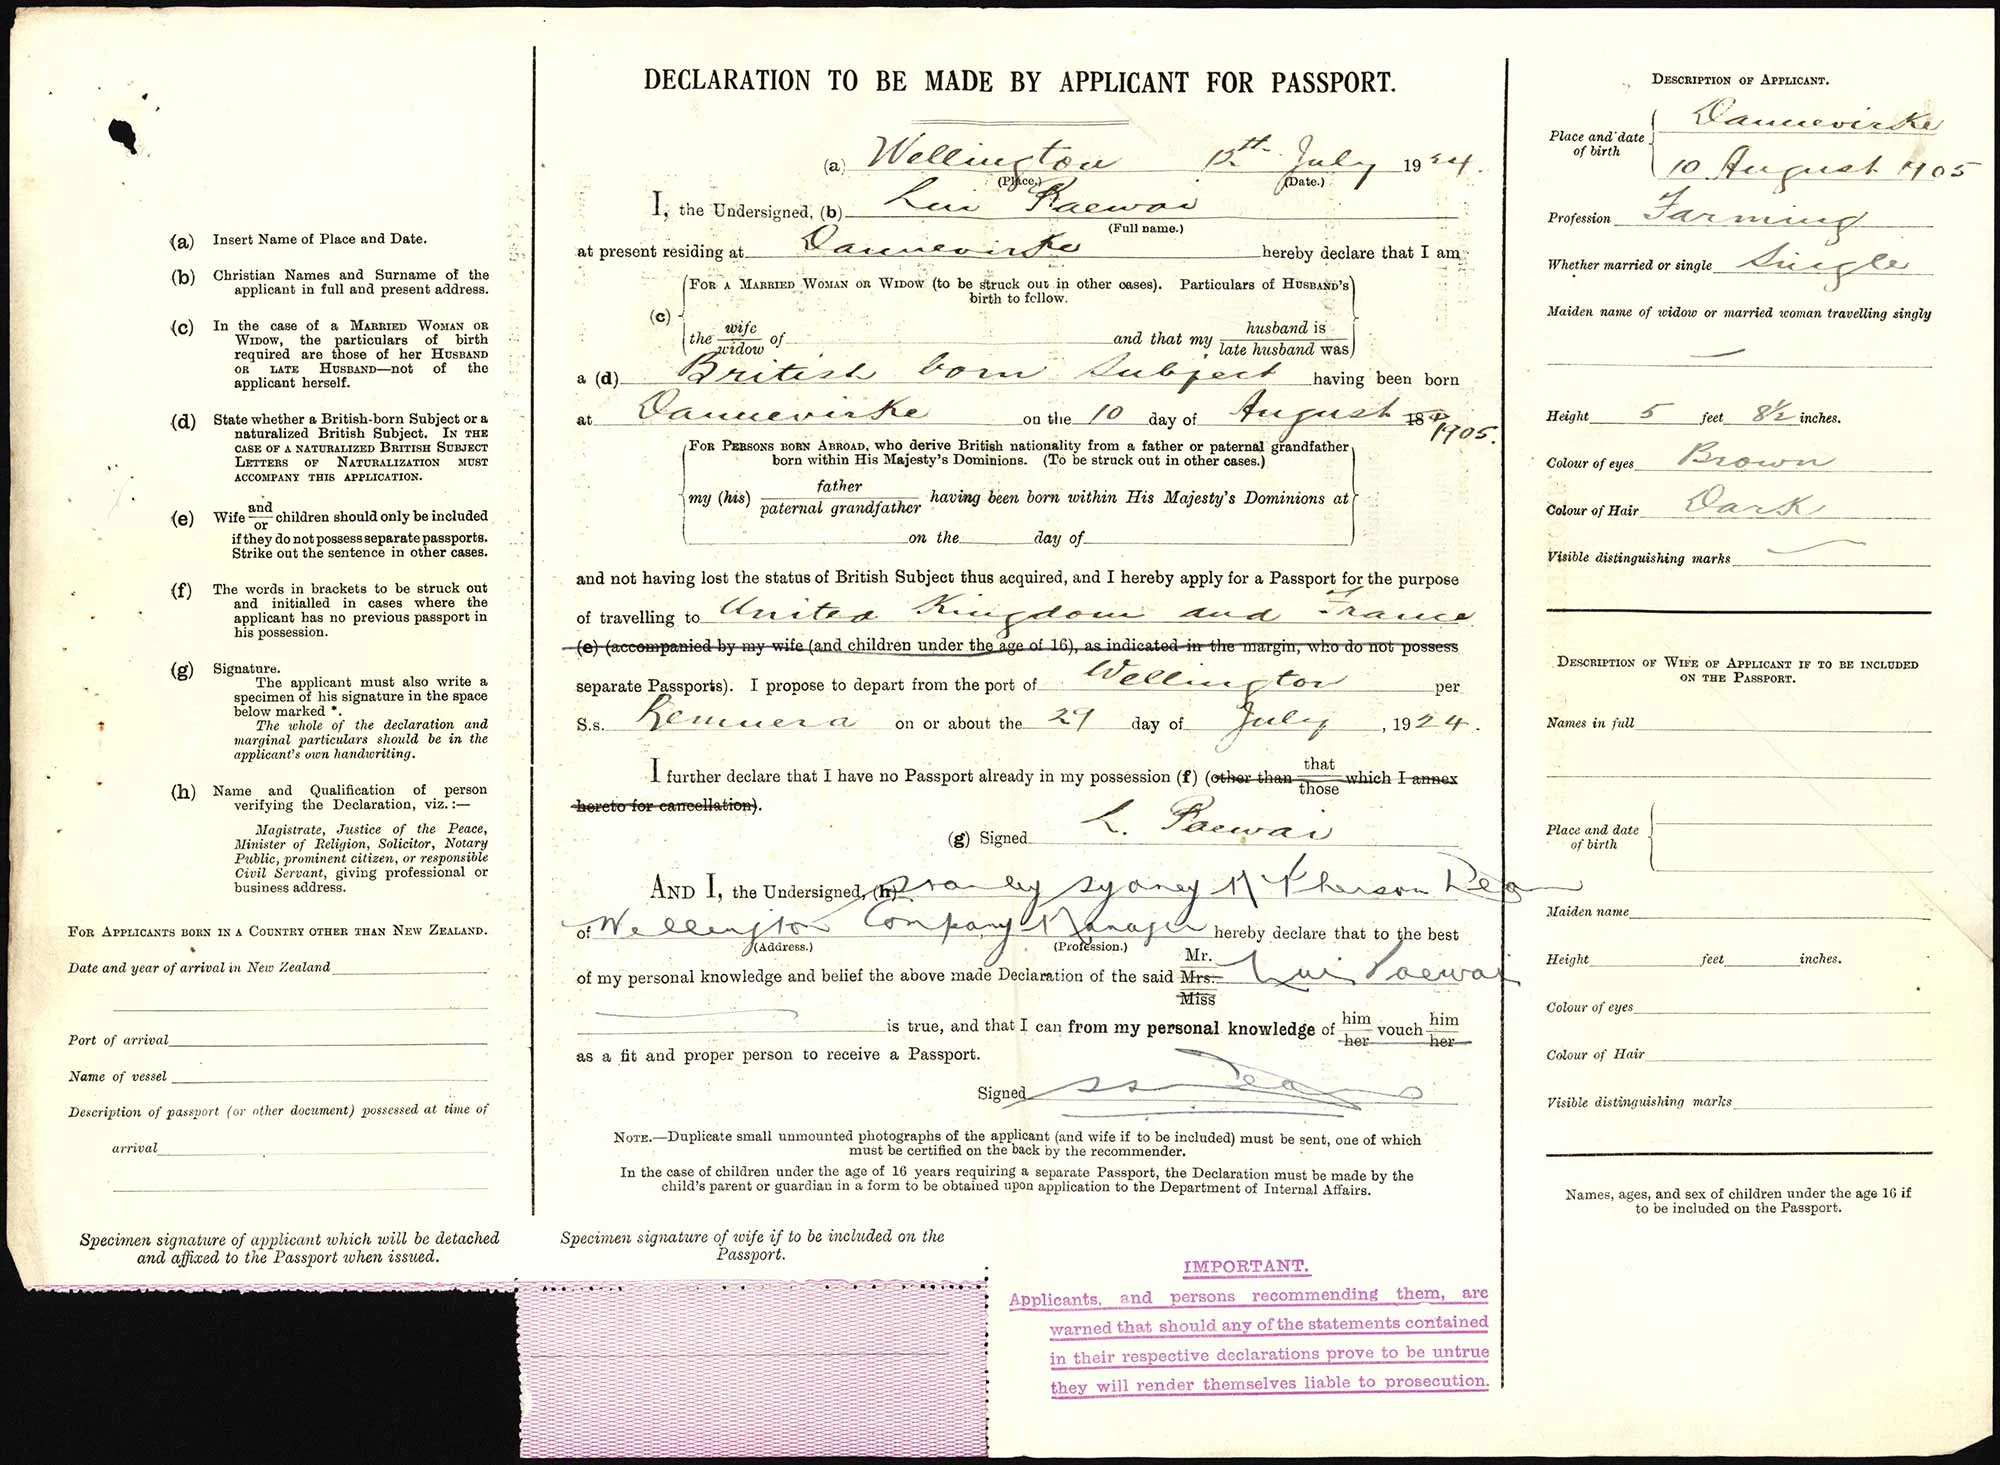 (a) Insert Name of Place and Date.
(b) Christian Names and Surname of the
applicant in full and present address.
(c) In the case of a MARRIED WOMAN OR
WIDOW, the particulars of birth
required are those of her HUSBAND
OR LATE HUSBAND—not of the
applicant herself.
(d) State whether a British-born Subject or a
naturalized British Subject. IN THE
CASE OF A NATURALIZED BRITISH SUBJECT
LETTERS OF NATURALIZATION MUST
ACCOMPANY THIS APPLICATION.
(e) Wife and/or children should only be included
if they do not possess separate passports.
Strike out the sentence in other cases.
(f) The words in brackets to be struck out
and initialled in cases where the
applicant has no previous passport in
his possession.
(g) Signature.
The applicant must also write a
specimen of his signature in the space
below marked *.
The whole of the declaration and
marginal particulars should be in the
applicant's own handwriting.
(h) Name and Qualification of person
verifying the Declaration, viz.:—
Magistrate, Justice of the Peace,
Minister of Religion, Solicitor, Notary
Public, prominent citizen, or responsible
Civil Servant, giving professional or
business address.
FOR APPLICANTS BORN IN A COUNTRY OTHER THAN NEW ZEALAND.
Date and year of arrival in New Zealand
Port of arrival
Name of vessel
Description of passport (or other document) possessed at time of
arrival
Specimen signature of applicant which will be detached
and affixed to the Passport when issued.
DECLARATION TO BE MADE BY APPLICANT FOR PASSPORT.
(a) Wellington 12th July 1924.
(Place.) (Date.)
I, the Undersigned, (b) Lui Paewai
(Full name.)
at present residing at Dannevirke hereby declare that I am
(c) FOR A MARRIED WOMAN OR WIDOW (to be struck out in other cases). Particulars of HUSBAND'S
birth to follow.
the wife/widow of and that my husband is/late husband was
a (d) British born Subject having been born
at Dannevirke on the 10 day of August 18 1905.
FOR PERSONS BORN ABROAD, who derive British nationality from a father or paternal grandfather
born within His Majesty's Dominions. (To be struck out in other cases.)
my (his) father/paternal grandfather having been born within His Majesty's Dominions at
on the day of
and not having lost the status of British Subject thus acquired, and I hereby apply for a Passport for the purpose
of travelling to United Kingdom and France
(e) (accompanied by my wife (and children under the age of 16), as indicated in the margin, who do not possess
separate Passports). I propose to depart from the port of Wellington per
S.s. Remuera on or about the 29 day of July, 1924.
I further declare that I have no Passport already in my possession (f) (other than that/those which I annex
hereto for cancellation).
(g) Signed L. Paewai
AND I, the Undersigned, (h) Stanley Sydney McPherson Dean
of Wellington Company Manager hereby declare that to the best
(Address.) (Profession.)
of my personal knowledge and belief the above made Declaration of the said Mr. Mrs. Miss Lui Paewai
is true, and that I can from my personal knowledge of him/her vouch him/her
as a fit and proper person to receive a Passport.
Signed SS Dean
NOTE.—Duplicate small unmounted photographs of the applicant (and wife if to be included) must be sent, one of which
must be certified on the back by the recommender.
In the case of children under the age of 16 years requiring a separate Passport, the Declaration must be made by the
child's parent or guardian in a form to be obtained upon application to the Department of Internal Affairs.
Specimen signature of wife if to be included on the
Passport.
IMPORTANT.
Applicants, and persons recommending them, are
warned that should any of the statements contained
in their respective declarations prove to be untrue
they will render themselves liable to prosecution.
DESCRIPTION OF APPLICANT.
Place and date of birth Dannevirke
10 August 1905
Profession Farming
Whether married or single Single
Maiden name of widow or married woman travelling singly
—
Height 5 feet 8½ inches.
Colour of eyes Brown
Colour of Hair Dark
Visible distinguishing marks —
DESCRIPTION OF WIFE OF APPLICANT IF TO BE INCLUDED
ON THE PASSPORT.
Names in full
Place and date
of birth
Maiden name
Height feet inches.
Colour of eyes
Colour of Hair
Visible distinguishing marks
Names, ages, and sex of children under the age 16 if
to be included on the Passport.